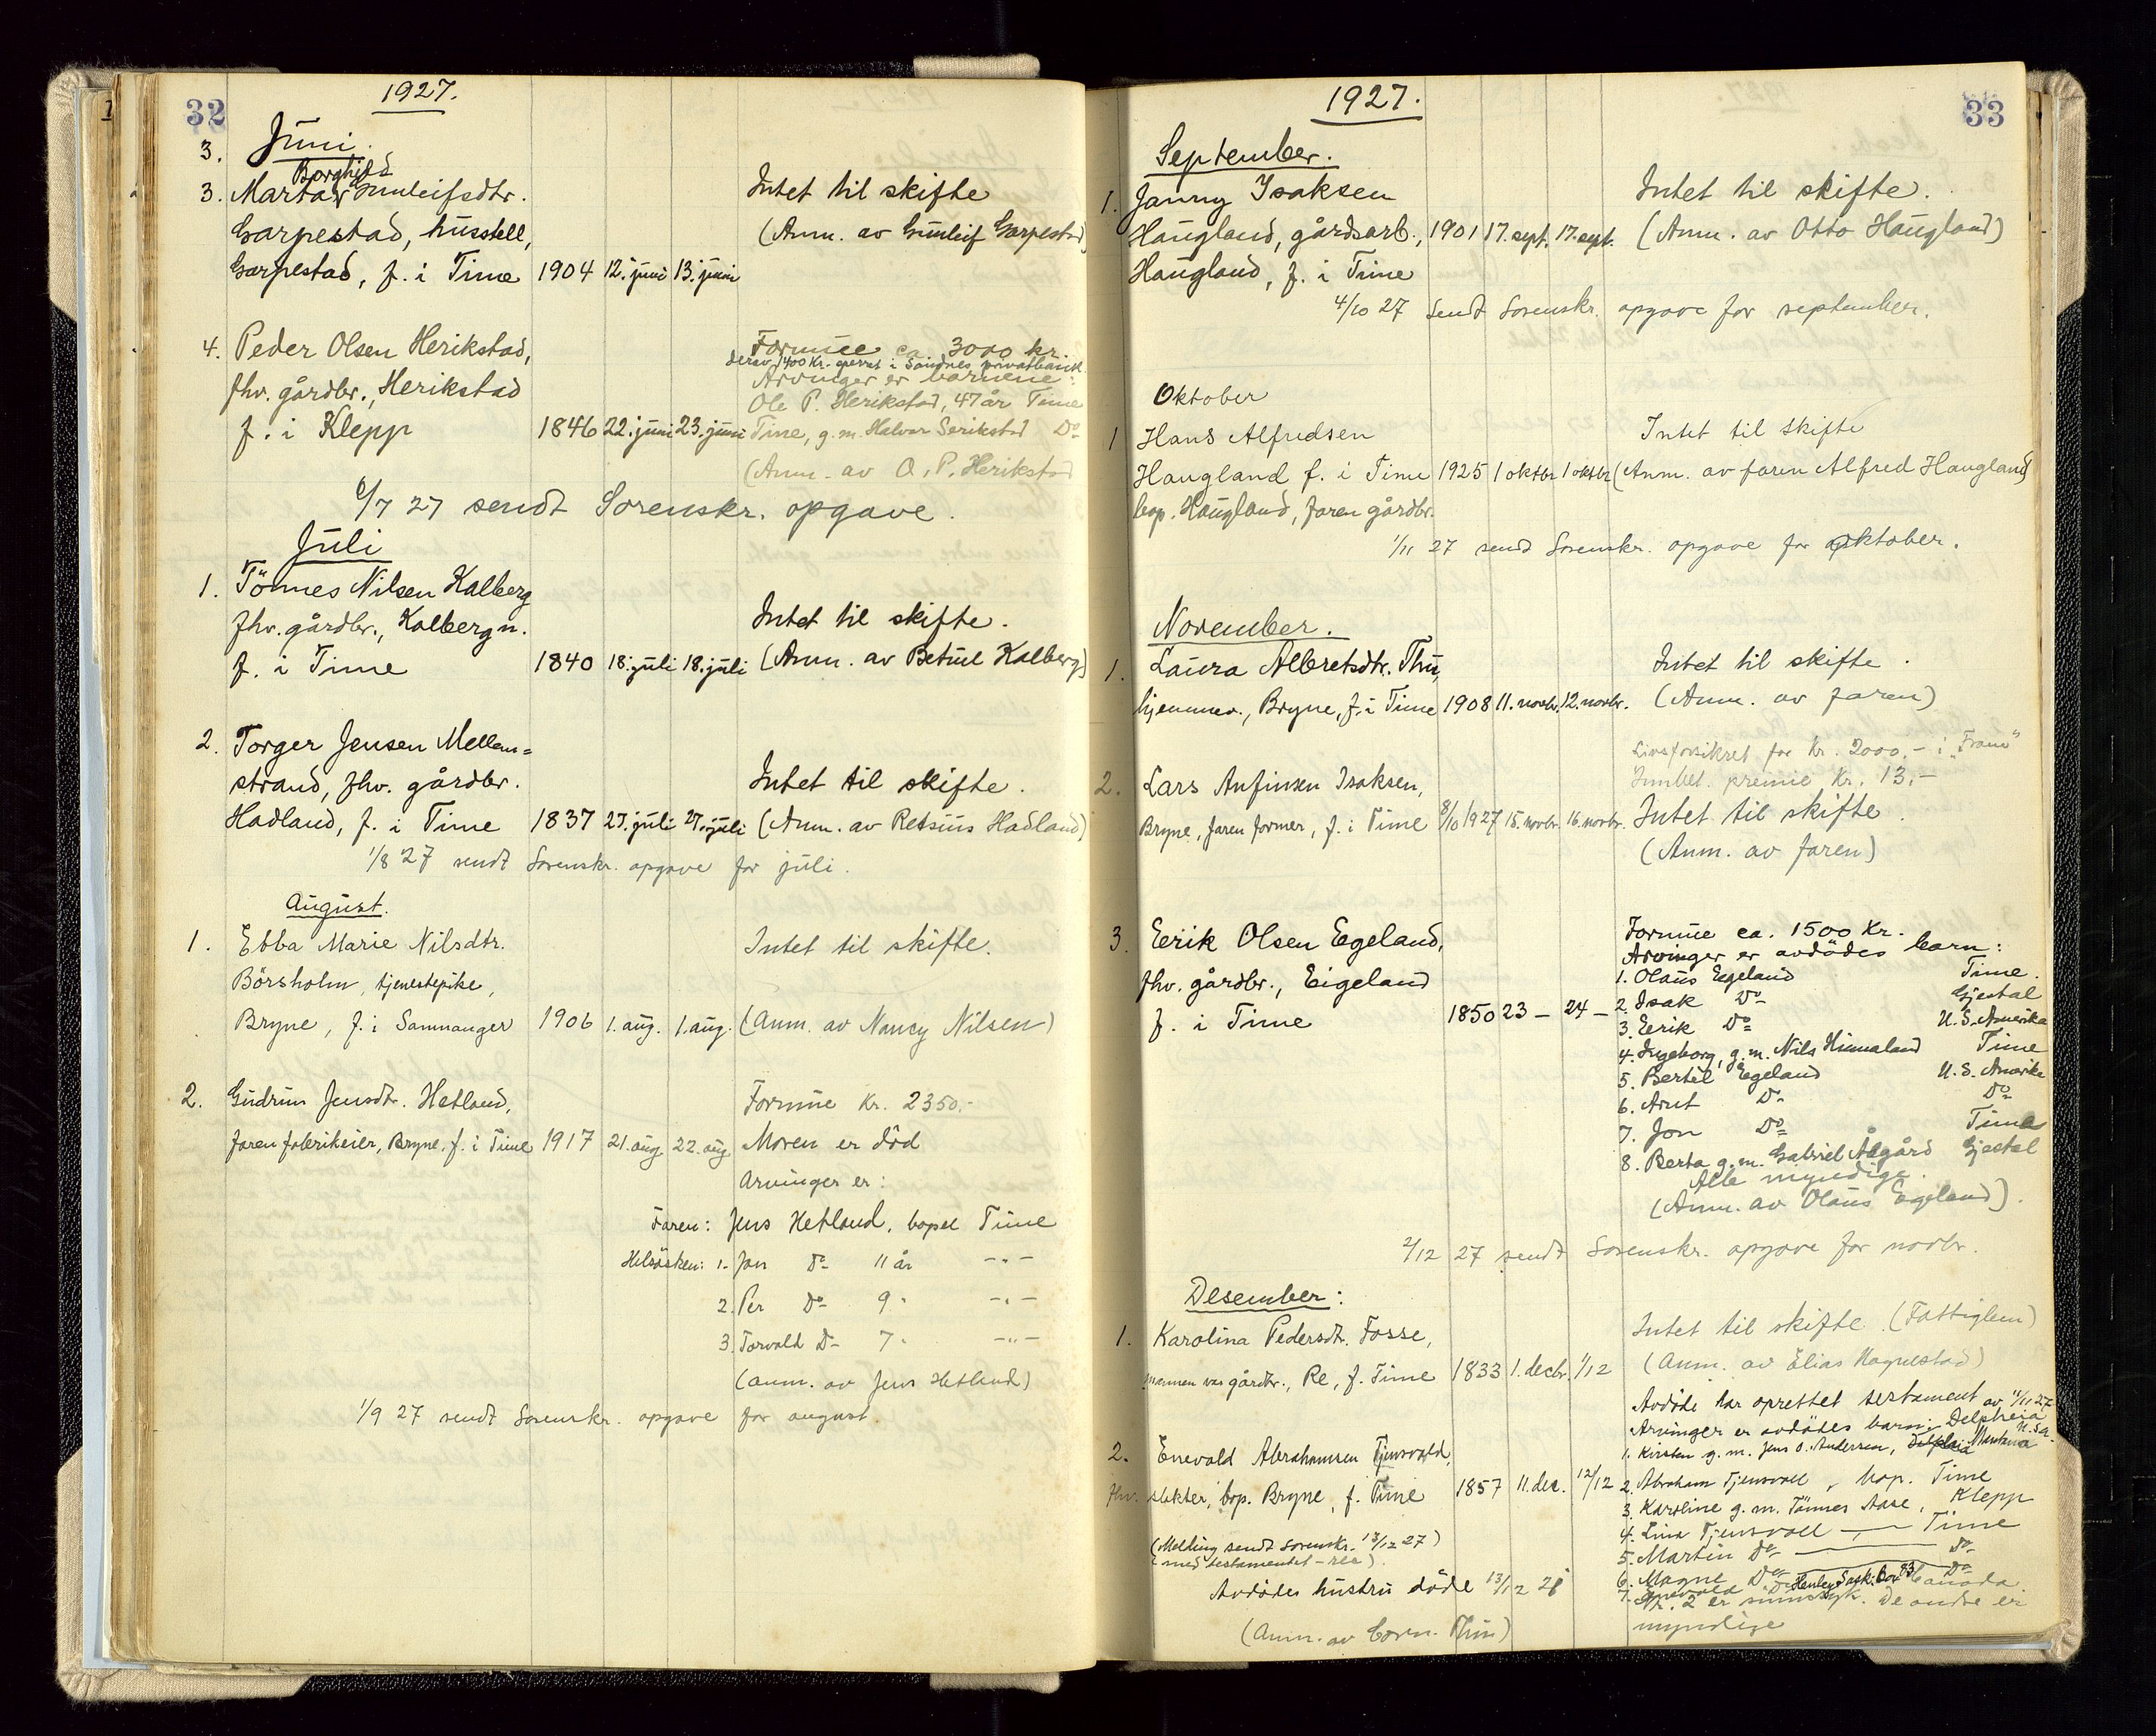 32
1927.
3. Juni.
Borghild
3. Marta Gunleifsdtr.
Garpestad, husstell,
Garpestad, f. i Time 1904 12. juni 13. juni
Intet til skifte
(Anm. av Gunleif Garpestad)
4. Peder Olsen Herikstad,
fhv. gårdbr., Herikstad
f. i Klepp 1846 22. juni 23. juni
Formue ca 3000 kr.
derav 1400 kr. arvet i Sandnes privatbank
Arvinger er barnene:
Ole P. Herikstad, 47 år Time
Tine, g.m. Halvor Serikstad Do
(Anm. av O. P. Herikstad
6/7 27 sendt Sorenskr. opgave.
Juli
1. Tönnes Nilsen Kalberg
fhv. gårdbr., Kalberg n.
f. i Time 1840 18. juli 18. juli
Intet til skifte.
(Anm. av Betuel Kalberg)
2. Torger Jensen Mellem=
strand, fhv. gårdbr.
Hadland, f. i Time 1837 27. juli 27. juli
Intet til skifte.
(Anm. av Retsius Hadland)
1/8 27 sendt Sorenskr. opgave for juli.
August.
1. Ebba Marie Nilsdtr.
Börsholm, tjenestepike,
Bryne, f. i Samnanger 1906 1. aug. 1. aug.
Intet til skifte.
(Anm. av Nancy Nilsen)
2. Gudrun Jensdtr. Hetland,
faren fabrikeier, Bryne, f. i Time 1917 21. aug 22. aug
Formue kr. 2350,-
Moren er död
Arvinger er:
Faren: Jens Hetland, bopel Time
Helsösken: 1. Jon Do 11 år -"-
2. Per Do 9 " -"-
3. Torvald Do 7 " -"-
(anm. av Jens Hetland)
1/9 27 sendt Sorenskr. opgave for august.
33
1927.
September.
1. Janny Isaksen
Haugland, gårdsarb., 1901 17. sept. 17. sept.
Haugland, f. i Time
Intet til skifte.
(Anm. av Otto Haugland)
4/10 27 sendt Sorenskr. opgave for september.
Oktober
1 Hans Alfredsen
Haugland f. i Time 1925 1 oktbr 1 oktbr
bop. Haugland, faren gårdbr.
Intet til skifte
(Anm. av faren Alfred Haugland)
1/11 27 send Sorenskr. opgave for oktober.
November.
1. Laura Albretsdtr. Thu,
hjemmev., Bryne, f. i Time 1908 11. novbr. 12. novbr.
Intet til skifte.
(Anm. av faren)
Livsforsikret for kr. 2000,- i "Fram"
Innbet. premie kr. 13,-
2. Lars Anfinsen Isaksen,
Bryne, faren former, f. i Time 8/10 1927 15. novbr. 16. novbr.
Intet til skifte.
(Anm. av faren)
3. Eerik Olsen Egeland,
fhv. gårdbr., Eigeland
f. i Time 1850 23 - 24 -
Formue ca. 1500 Kr.
Arvinger er avdödes barn:
1. Olaus Egeland Time.
2. Isak Do Gjestal
3. Eerik Do U.S. Amerika
4. Ingeborg, g.m. Nils Humaland Time
5. Bertil Egeland U.S. Amerika
6. Arnt Do Do
7. Jon Do Time
8. Berta g.m. Gabriel Ålgård Gjestal
Alle myndige.
(Anm. av Olaus Egeland).
2/12 27 sendt Sorenskr. opgave for novbr.
Desember:
1. Karolina Pedersdt. Fosse,
mannen var gårdbr., Re, f. Time 1833 1. decbr. 1/12
Intet til skifte. (Fattiglem)
(Anm. av Elias Hognestad)
2. Enevald Abrahamsen Tjensvold,
fhv. slakter, bop. Bryne, f. Time 1857 11. dec. 12/12
(Melding sendt sorenskr. 13/12 27)
(med testamentet - rec).
Avdödes hustru döde 13/12 21
(Anm. av Corn. Thu)
Avdöde har oprettet testament av 11/11 27
Arvinger er avdödes barn:
1. Kirsten g.m. Jens O. Andersen, Montana U.S.A.
2. Abraham Tjensvoll, bop. Time
3. Karoline g.m. Tönnes Aase, Klepp
4. Lina Tjensvoll -"- Time
5. Martin Do Do
6. Magne Do Do
7. Enevald Do Henley Sask. Box 93 Canada.
Nr. 2 er sinnsyk. De andre er
myndige